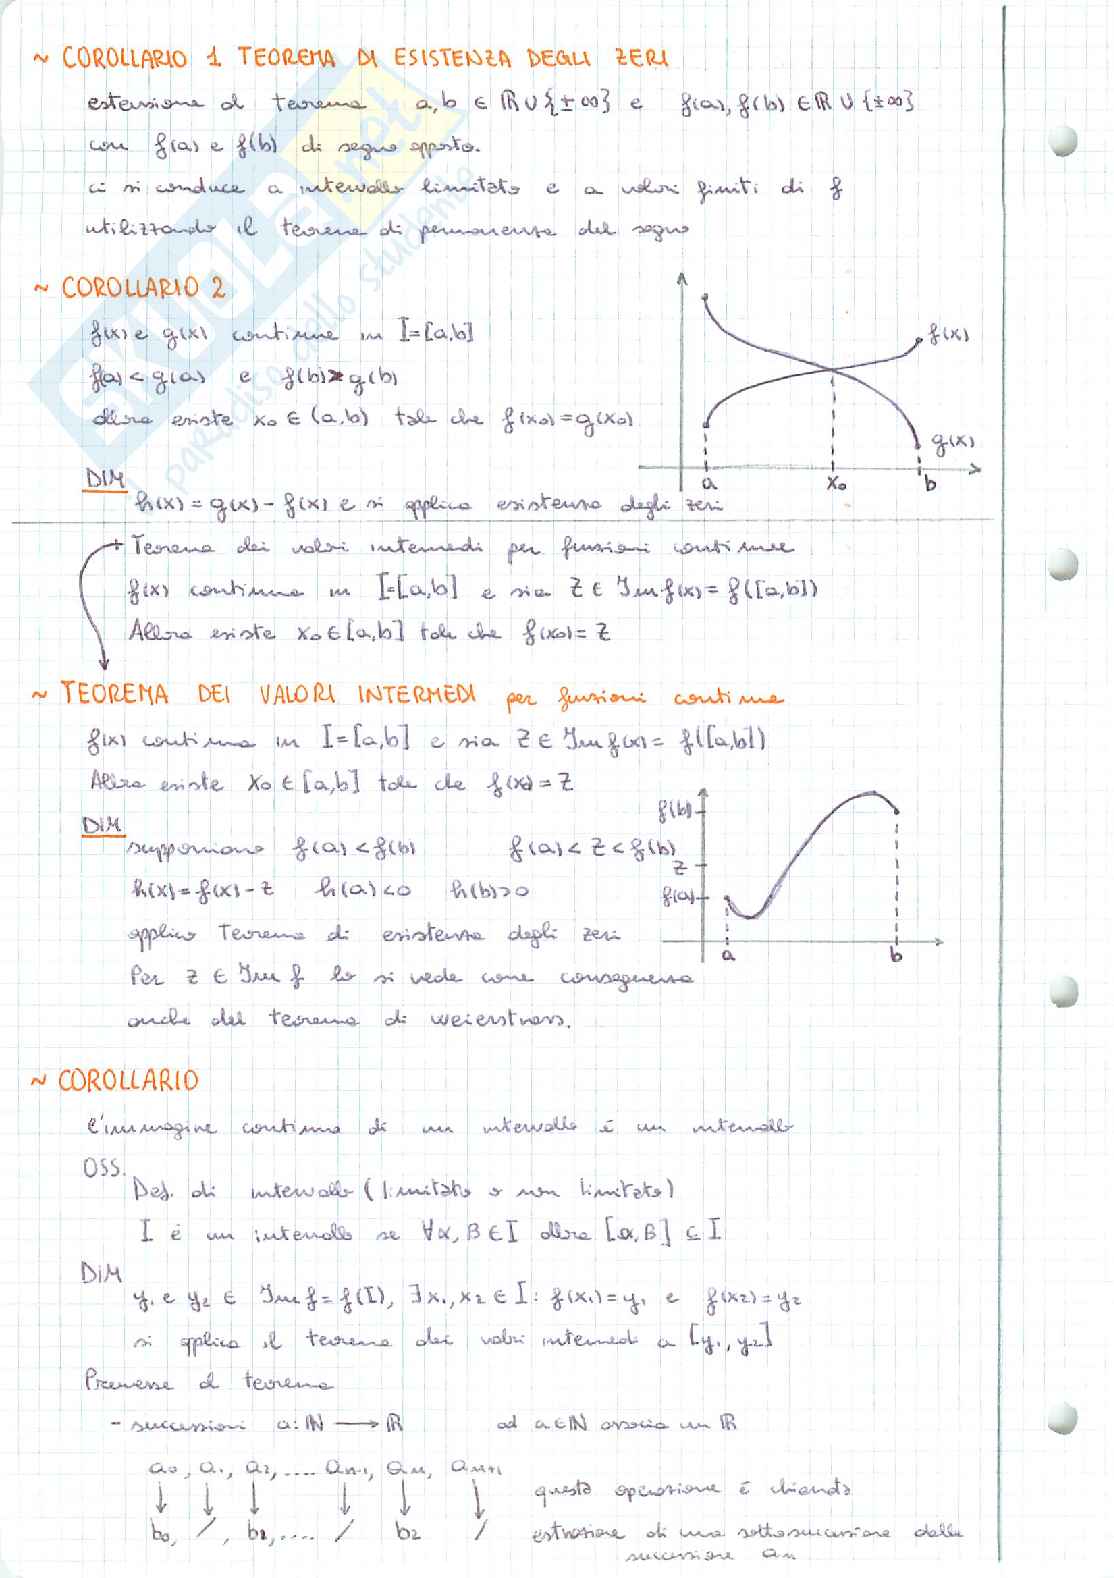 ~ COROLLARIO 1 TEOREMA DI ESISTENZA DEGLI ZERI
estensione al teorema a,b ∈ ℝ∪{±∞} e f(a), f(b) ∈ ℝ ∪ {±∞}
con f(a) e f(b) di segno opposto.
ci si conduce a intervallo limitato e a valori finiti di f
utilizzando il teorema di permanenza del segno
~ COROLLARIO 2
f(x) e g(x) continue in I=[a,b]
f(a) < g(a) e f(b) > g(b)
allora esiste x₀ ∈ (a,b) tale che f(x₀) = g(x₀)
f(x)
g(x)
a x₀ b
DIM
h(x) = g(x) - f(x) e si applica esistenza degli zeri
+ Teorema dei valori intermedi per funzioni continue
f(x) continua in I=[a,b] e sia Z ∈ Im f(x) = f([a,b])
Allora esiste x₀ ∈ [a,b] tale che f(x₀) = Z
~ TEOREMA DEI VALORI INTERMEDI per funzioni continue
f(x) continua in I=[a,b] e sia Z ∈ Im f(x) = f([a,b])
Allora esiste x₀ ∈ [a,b] tale che f(x₀) = Z
DIM
supponiamo f(a) < f(b) f(a) < Z < f(b)
h(x) = f(x) - Z h(a) < 0 h(b) > 0
applico Teorema di esistenza degli zeri
Per Z ∈ Im f lo si vede come conseguenza
anche del teorema di weierstrass.
f(b)
Z
f(a)
a b
~ COROLLARIO
l'immagine continua di un intervallo è un intervallo
OSS.
Def. di intervallo (limitato o non limitato)
I è un intervallo se ∀α, β ∈ I allora [α, β] ⊆ I
DIM
y₁ e y₂ ∈ Im f = f(I), ∃ x₁, x₂ ∈ I : f(x₁) = y₁ e f(x₂) = y₂
si applica il teorema dei valori intermedi a [y₁, y₂]
Premesse al teorema
- successioni a: ℕ → ℝ ad a ∈ ℕ associa un ℝ
a₀, a₁, a₂, .... aₙ₋₁, aₙ, aₙ₊₁
b₀, /, b₁, .... / b₂ /
questa operazione è chiamata
estrazione di una sottosuccessione dalla
successione aₙ
SKUOLA.net
paradiso dello studente